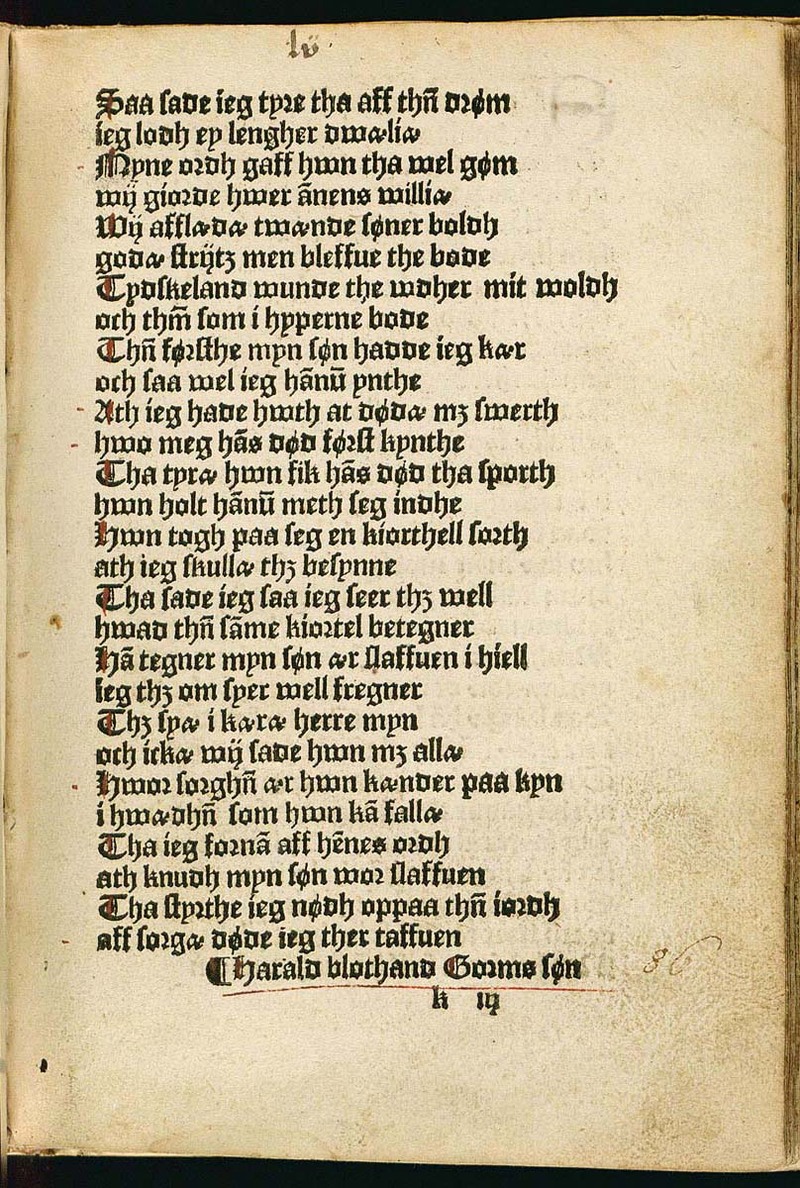 lv
Saa sade ieg tyre tha aff thñ drøm
ieg lodh ey lengher dwæliæ
Myne ordh gaff hwn tha wel gøm
wij giorde hwer ānens williæ
Wij afflædæ twænde søner boldh
godæ strijtz men bleffue the bode
Tydskeland wunde the wdher mit woldh
och thm̄ som i hyperne bode
Thñførsthe myn søn hadde ieg kær
och saa wel ieg hānū ynthe
Ath ieg hade hwth at dødæ mꝫ swerth
hwo meg hās død først kynthe
Tha tyræ hwn fik hās død tha sporth
hwn holt hānū meth seg indhe
Hwn togh paa seg en kiorthell sorth
ath ieg skullæ thꝫ besynne
Tha sade ieg saa ieg seer thꝫ well
hwad thñ sāme kiortel betegner
Hā tegner myn søn ær slaffuen i hiell
ieg thꝫ om syer well fregner
Thꝫ syæ i kæræ herre myn
och ickæ wij sade hwn mꝫ allæ
Hwor sorghñ ær hwn kænder paa kyn
i hwædhñ som hwn kā fallæ
Tha ieg fornā aff hēnes ordh
ath knudh myn søn wor slaffuen
Tha styrthe ieg nødh oppaa thñ iordh
aff sorgæ døde ieg ther taffuen
¶Harald blothand Gorms søn
k iij
86